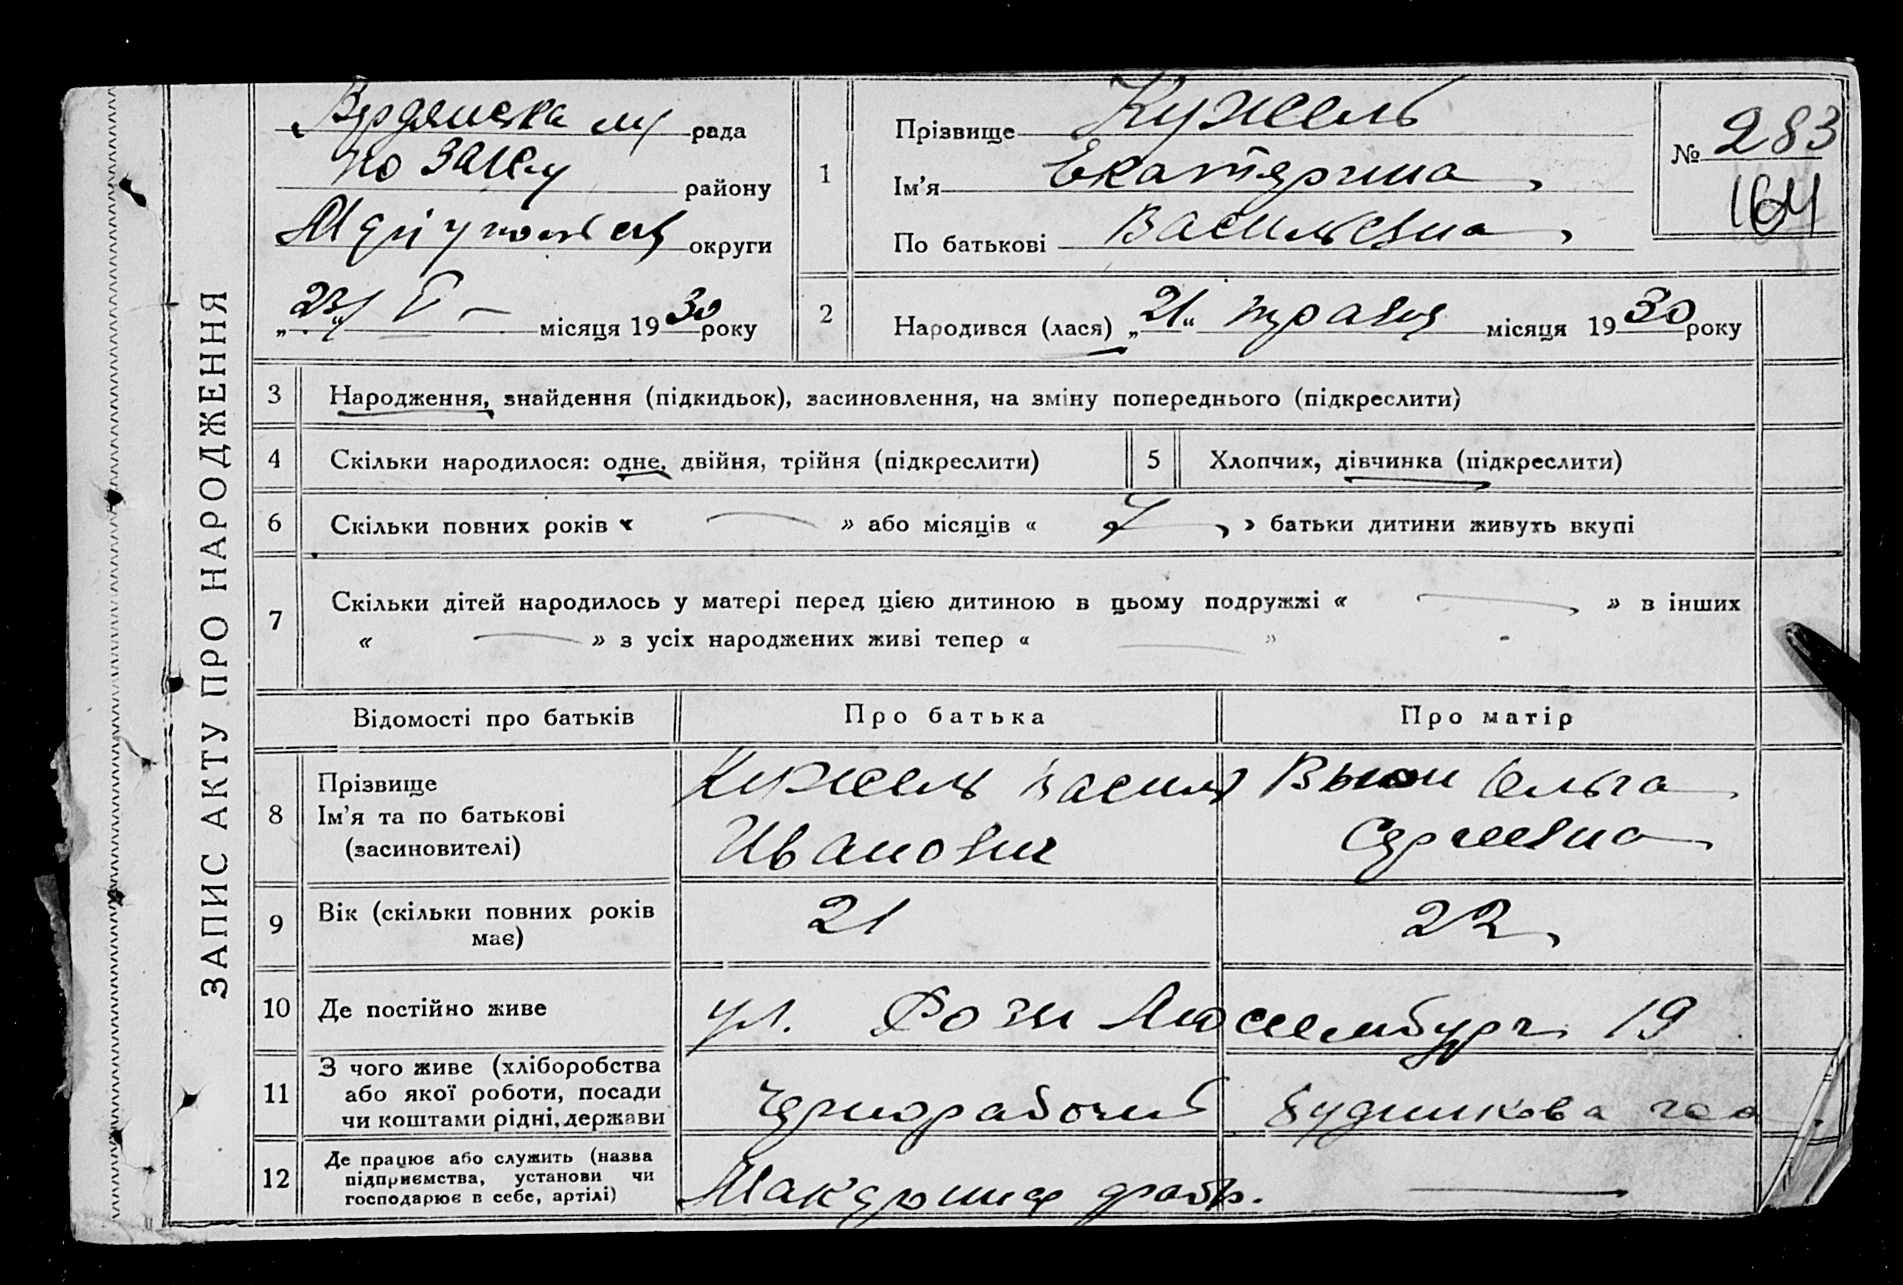 ЗАПИС АКТУ ПРО НАРОДЖЕННЯ
Бердянска рада
по ЗАГСу району
Маріупольськ округи
„23“ V – місяця 1930 року
1 Прізвище Кужель
Ім’я Екатерина
По батькові Васильевна
№ 283
164
2 Народився (лася) „21“ травня місяця 1930 року
3 Народження, знайдення (підкидьок), засиновлення, на зміну попереднього (підкреслити)
4 Скільки народилося: одне, двійня, трійня (підкреслити)
5 Хлопчик, дівчинка (підкреслити)
6 Скільки повних років « — » або місяців « » батьки дитини живуть вкупі
7 Скільки дітей народилось у матері перед цією дитиною в цьому подружжі « — » в інших
« — » з усіх народжених живі тепер « — »
Відомості про батьків Про батька Про матір
8 Прізвище
Ім’я та по батькові
(засиновителі)
Кужель Василь
Иванович
Ольга
Сергеевна
9 Вік (скільки повних років
має)
21 22
10 Де постійно живе ул. Розы Люксембург 19
11 З чого живе (хліборобства
або якої роботи, посади
чи коштами рідні, держави
Чернорабочий
12 Де працює або служить (назва
підприємства, установи чи
господарює в себе, артілі)
фабр. —